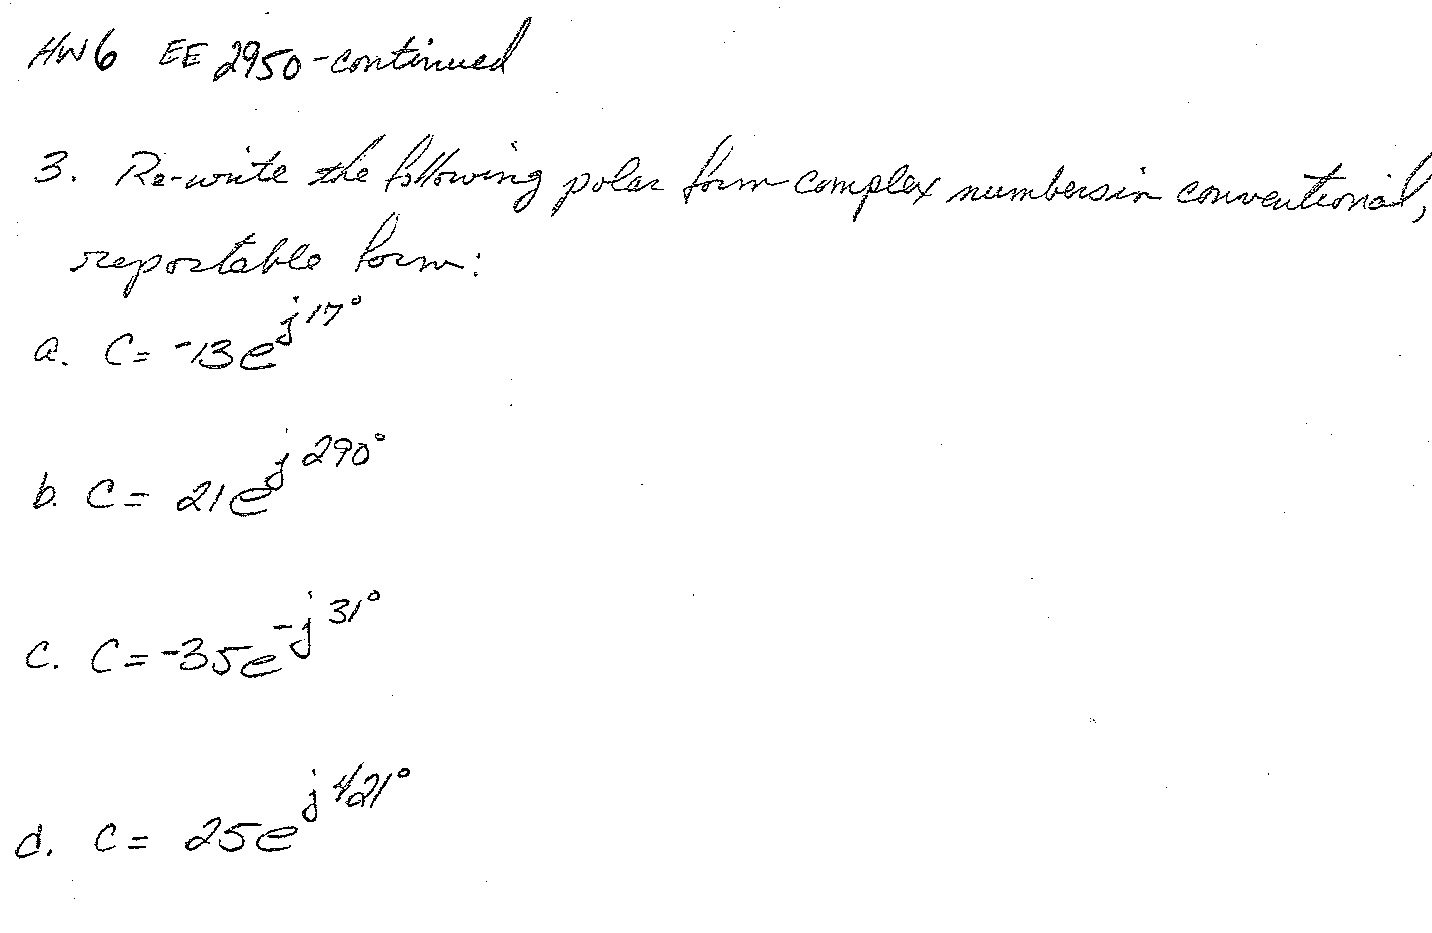 HW6 EE 2950-continued
3. Re-write the following polar form complex numbers in conventional,
reportable form:
a. C= -13e^j17°
b. C= 21e^j290°
c. C=-35e^-j31°
d. C= 25e^j421°